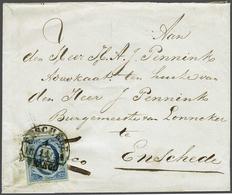 Aan
den Heer M. A. J. Pennink
Advokaat ten huize van
den Heer J Pennink
Burgemeester van Lonneker
te
Enschede